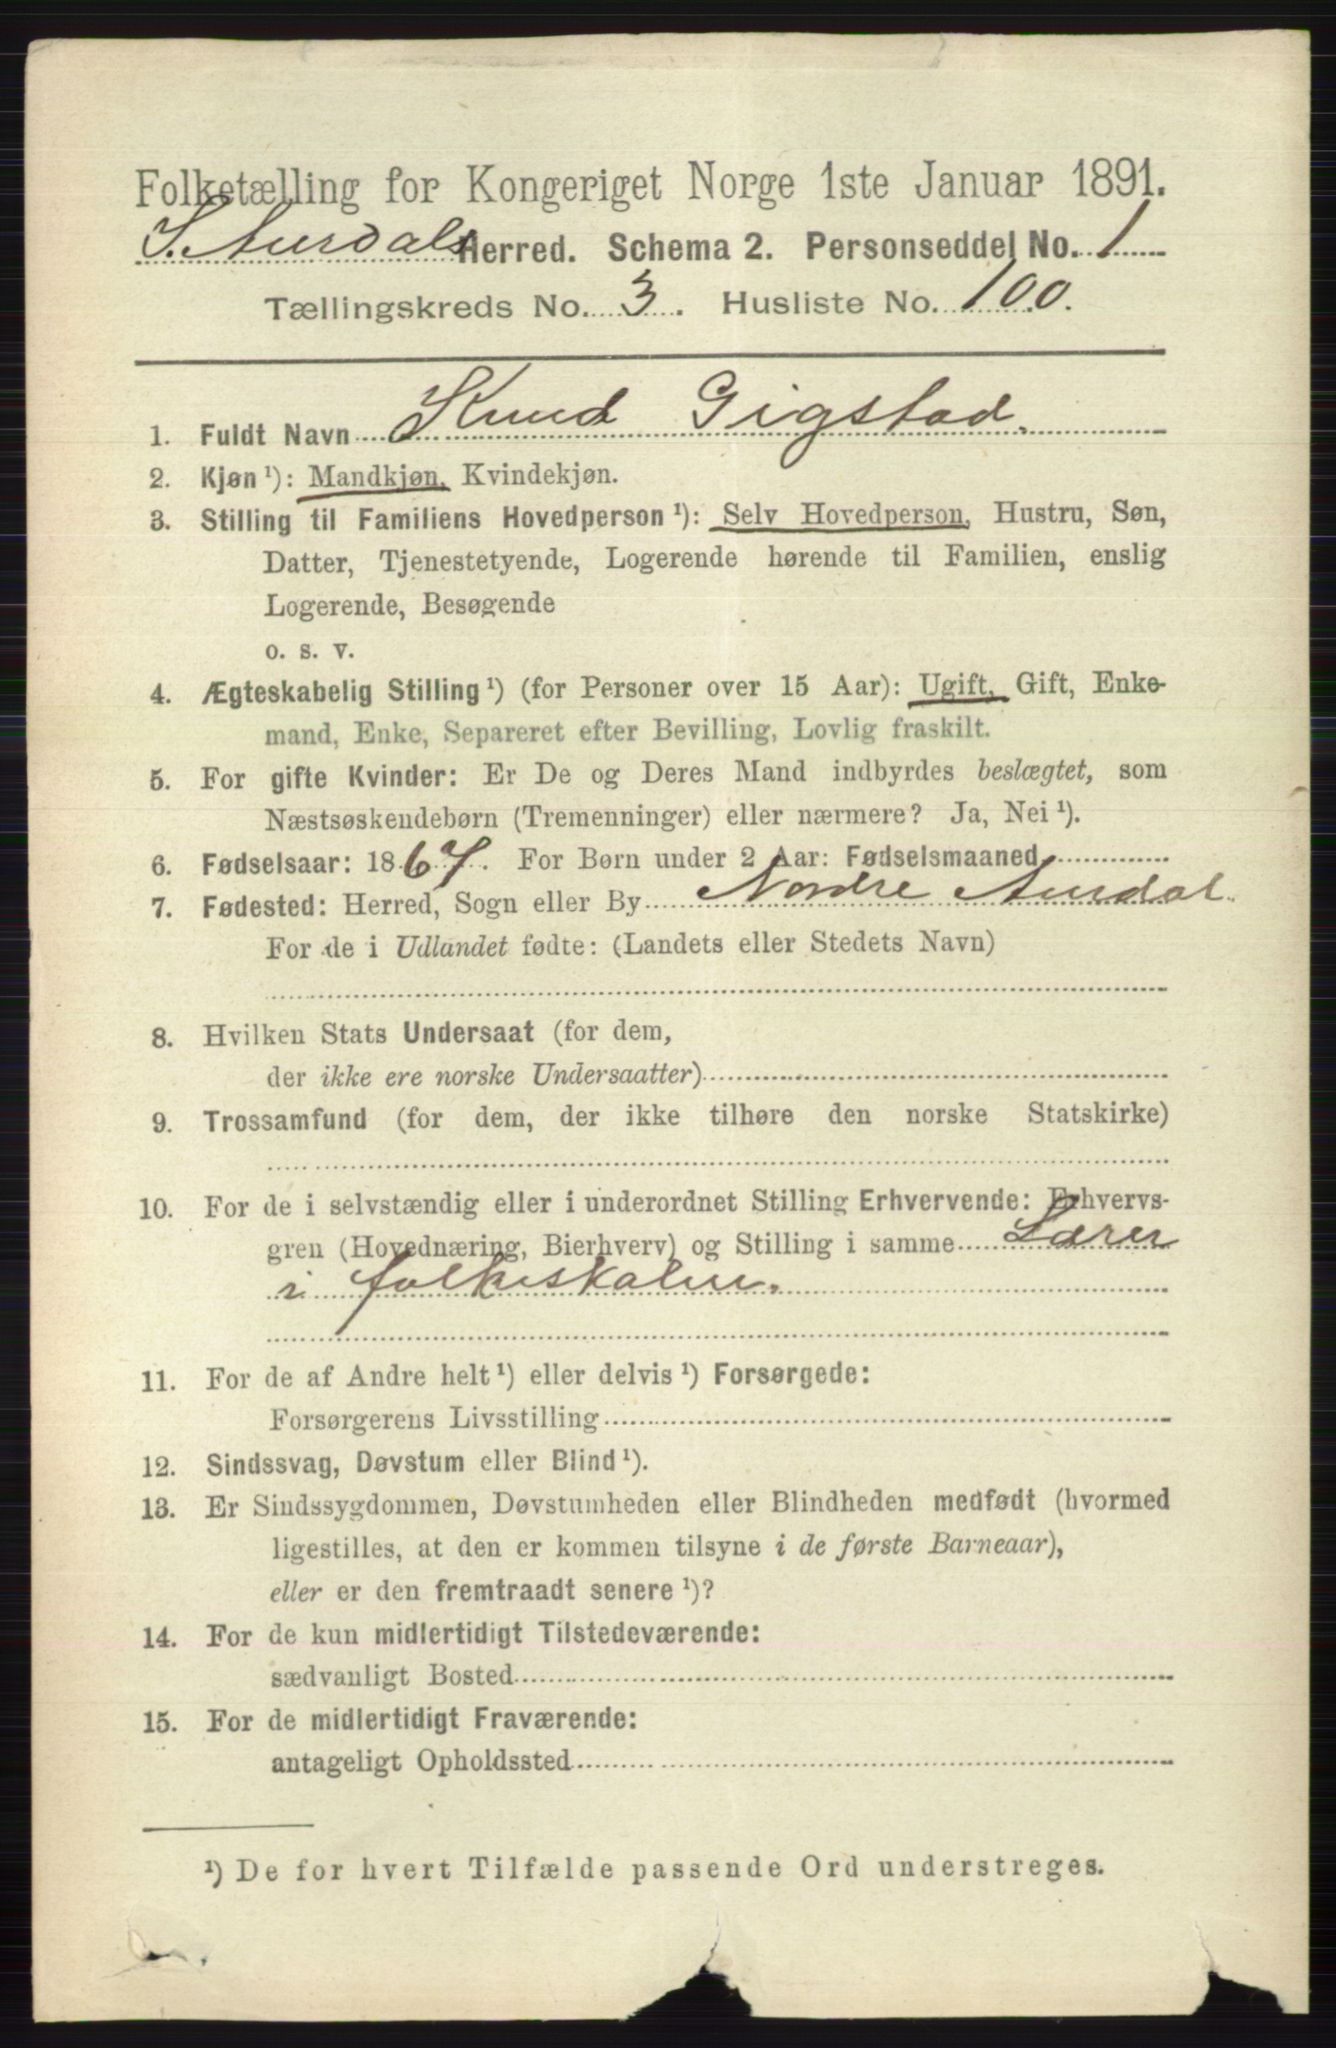 Folketælling for Kongeriget Norge 1ste Januar 1891.
S. Aurdals Herred. Schema 2. Personseddel No. 1
Tællingskreds No. 3. Husliste No. 100.
1. Fuldt Navn Knud Gigstad.
2. Kjøn ¹): Mandkjøn, Kvindekjøn.
3. Stilling til Familiens Hovedperson ¹): Selv Hovedperson, Hustru, Søn,
Datter, Tjenestetyende, Logerende hørende til Familien, enslig
Logerende, Besøgende
o. s. v.
4. Ægteskabelig Stilling ¹) (for Personer over 15 Aar): Ugift, Gift, Enke-
mand, Enke, Separeret efter Bevilling, Lovlig fraskilt.
5. For gifte Kvinder: Er De og Deres Mand indbyrdes beslægtet, som
Næstsøskendebørn (Tremenninger) eller nærmere? Ja, Nei ¹).
6. Fødselsaar: 1867. For Børn under 2 Aar: Fødselsmaaned
7. Fødested: Herred, Sogn eller By Nordre Aurdal.
For de i Udlandet fødte: (Landets eller Stedets Navn)
8. Hvilken Stats Undersaat (for dem,
der ikke ere norske Undersaatter)
9. Trossamfund (for dem, der ikke tilhøre den norske Statskirke)
10. For de i selvstændig eller i underordnet Stilling Erhvervende: Erhvervs-
gren (Hovednæring, Bierhverv) og Stilling i samme Lærer
i folkeskolen.
11. For de af Andre helt ¹) eller delvis ¹) Forsørgede:
Forsørgerens Livsstilling
12. Sindssvag, Døvstum eller Blind ¹).
13. Er Sindssygdommen, Døvstumheden eller Blindheden medfødt (hvormed
ligestilles, at den er kommen tilsyne i de første Barneaar),
eller er den fremtraadt senere ¹)?
14. For de kun midlertidigt Tilstedeværende:
sædvanligt Bosted
15. For de midlertidigt Fraværende:
antageligt Opholdssted
¹) De for hvert Tilfælde passende Ord understreges.